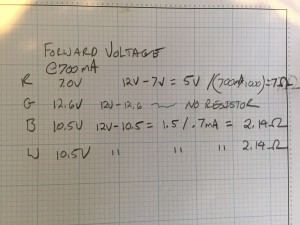 FORWARD VOLTAGE
@700mA
R 7.0V 12V-7V = 5V /(700mA/1000)=7Ω
G 12.6V 12V-12.6 ~ NO RESISTOR
B 10.5V 12V-10.5 = 1.5/.7mA = 2.14Ω
W 10.5V " " " 2.14Ω